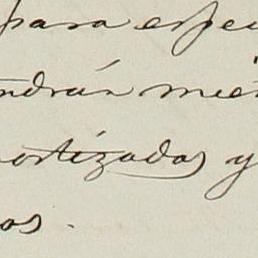 para espe
ndrán mien
ortizadas y
os.